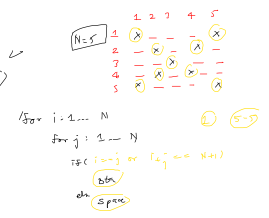 1 2 3 4 5
N=5
1 x _ _ _ x
2 _ x _ x _
3 _ _ x _ _
4 _ x _ x _
5 x _ _ _ x
for i: 1 -- N
for j: 1 -- N
if( i==j or i+j ==
star
else space